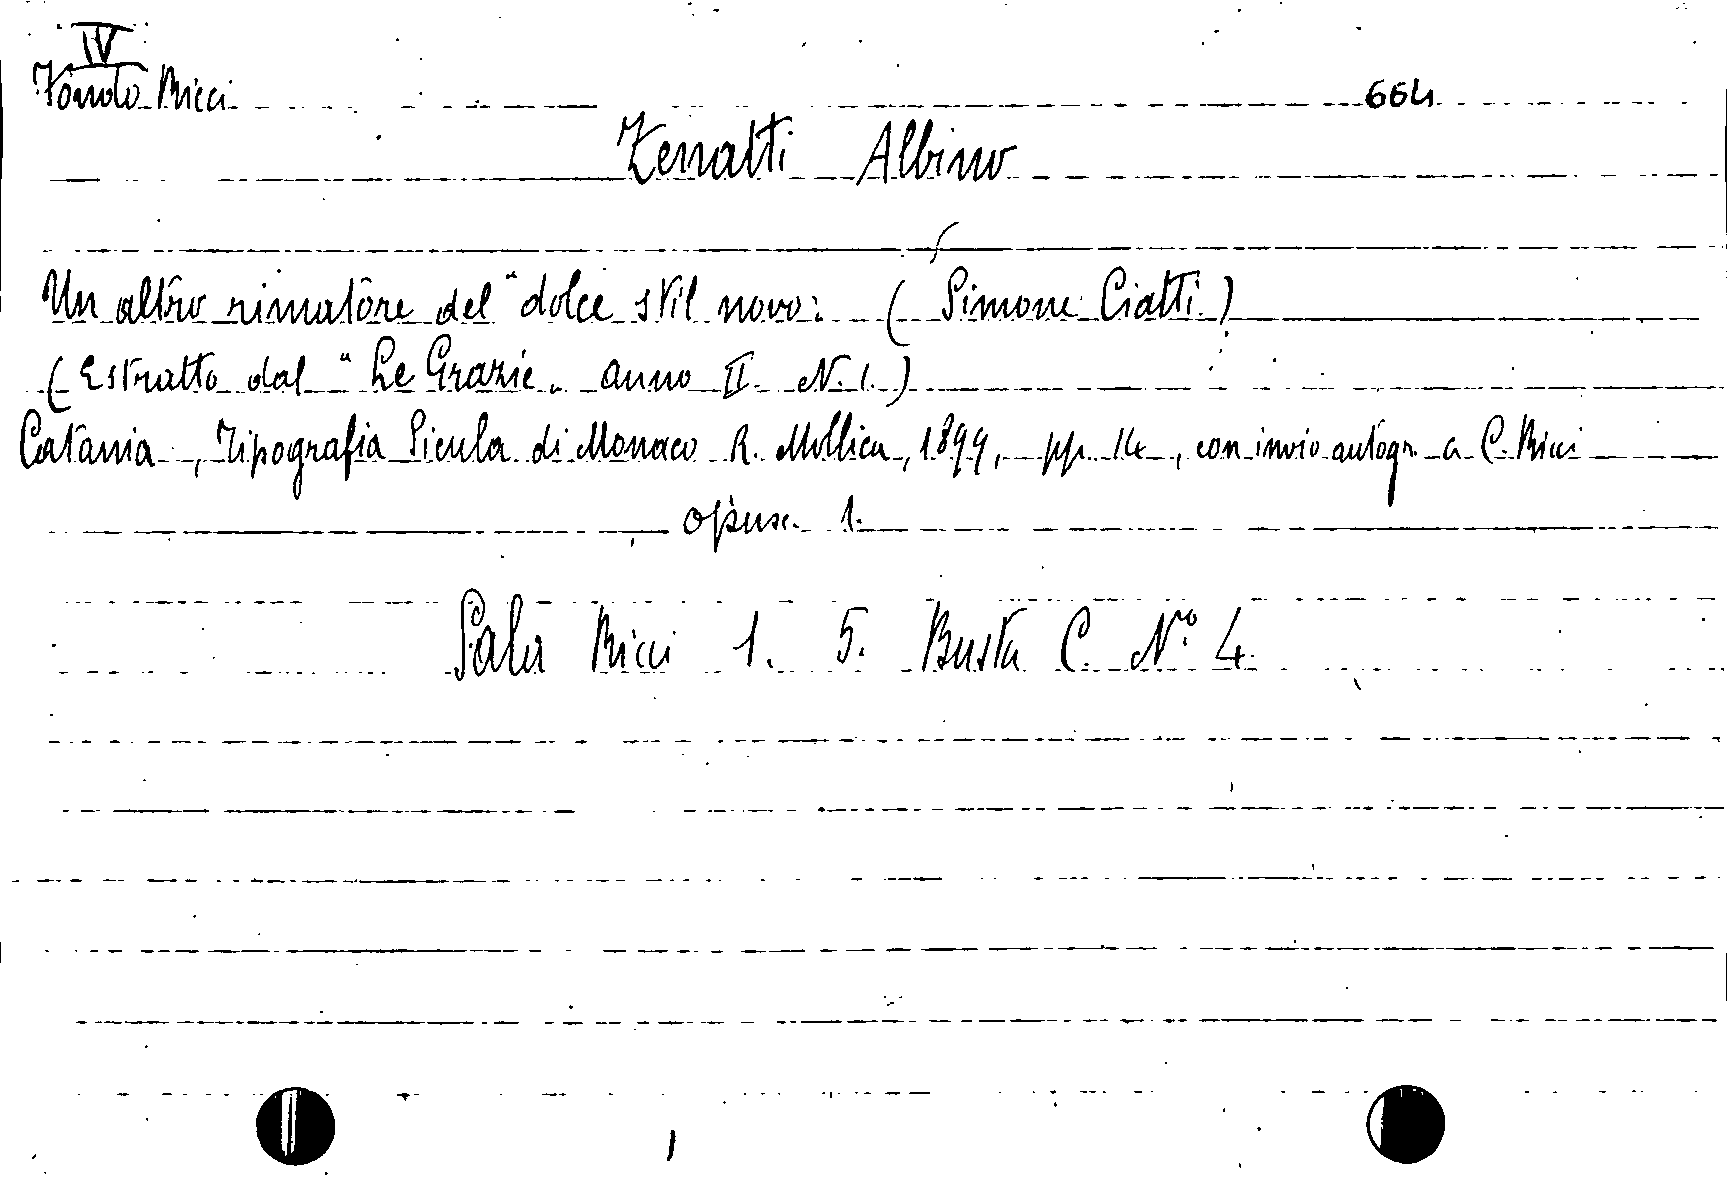 IV
Fondo Ricci 664
Zenatti Albino
Un altro rimatore del "dolce stil novo: (Simone Ciatti)
(Estratto dal "Le Grazie" anno II. N. 1.)
Catania, Tipografia Sicula di Monaco R. Mollica, 1899, pp. 14, con invio autogr. a C. Ricci
opusc. 1.
Sala Ricci 1. 5. Busta C. N.° 4